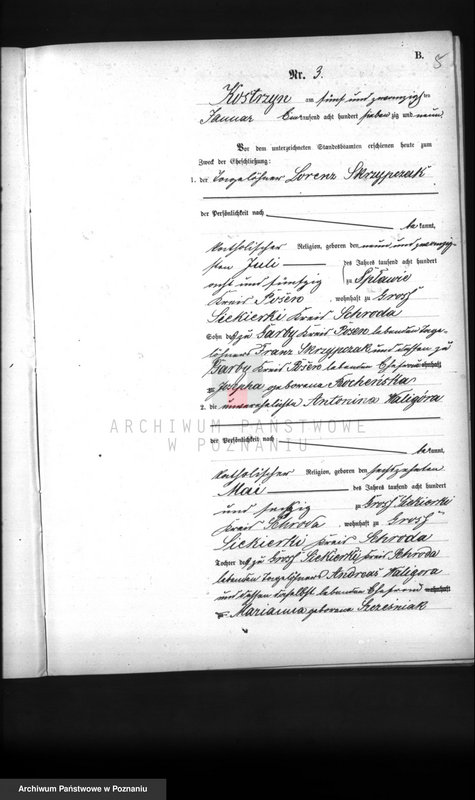 B.
5
Nr. 3.
Kostrzyn am fünf und zwanzigsten
Januar Eintausend acht hundert sieben zig und neun
Vor dem unterzeichneten Standesbeamten erschienen heute zum
Zweck der Eheschließung:
1. der Tagelöhner Lorenz Skrzypczak
der Persönlichkeit nach
bekannt,
katholischer Religion, geboren den neun und zwanzig-
sten Juli des Jahres tausend acht hundert
acht und fünfzig zu Spławie
Kreis Posen, wohnhaft zu Groß
Siekierki Kreis Schroda
Sohn des zu Garby Kreis Posen lebenden Tage-
löhners Franz Skrzypczak und dessen zu
Garby Kreis Posen lebenden Ehefrau wohnhaft
zu Josepha geborene Kocheńska
2. die unverehelichte Antonina Waligóra
ARCHIWUM PAŃSTWOWE
W POZNANIU
der Persönlichkeit nach
bekannt,
katholischer Religion, geboren den sechzehnten
Mai des Jahres tausend acht hundert
und sechzig zu Groß Siekierki
Kreis Schroda, wohnhaft zu Groß
Siekierki Kreis Schroda
Tochter des zu Groß Siekierki Kreis Schroda
lebenden Tagelöhners Andreas Waligora
und dessen daselbst lebenden Ehefrau wohnhaft
zu Marianna geborene Szcześniak
Archiwum Państwowe w Poznaniu